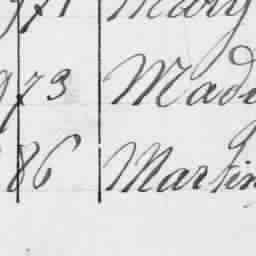 971 Mary
973 Mad
86 Martin